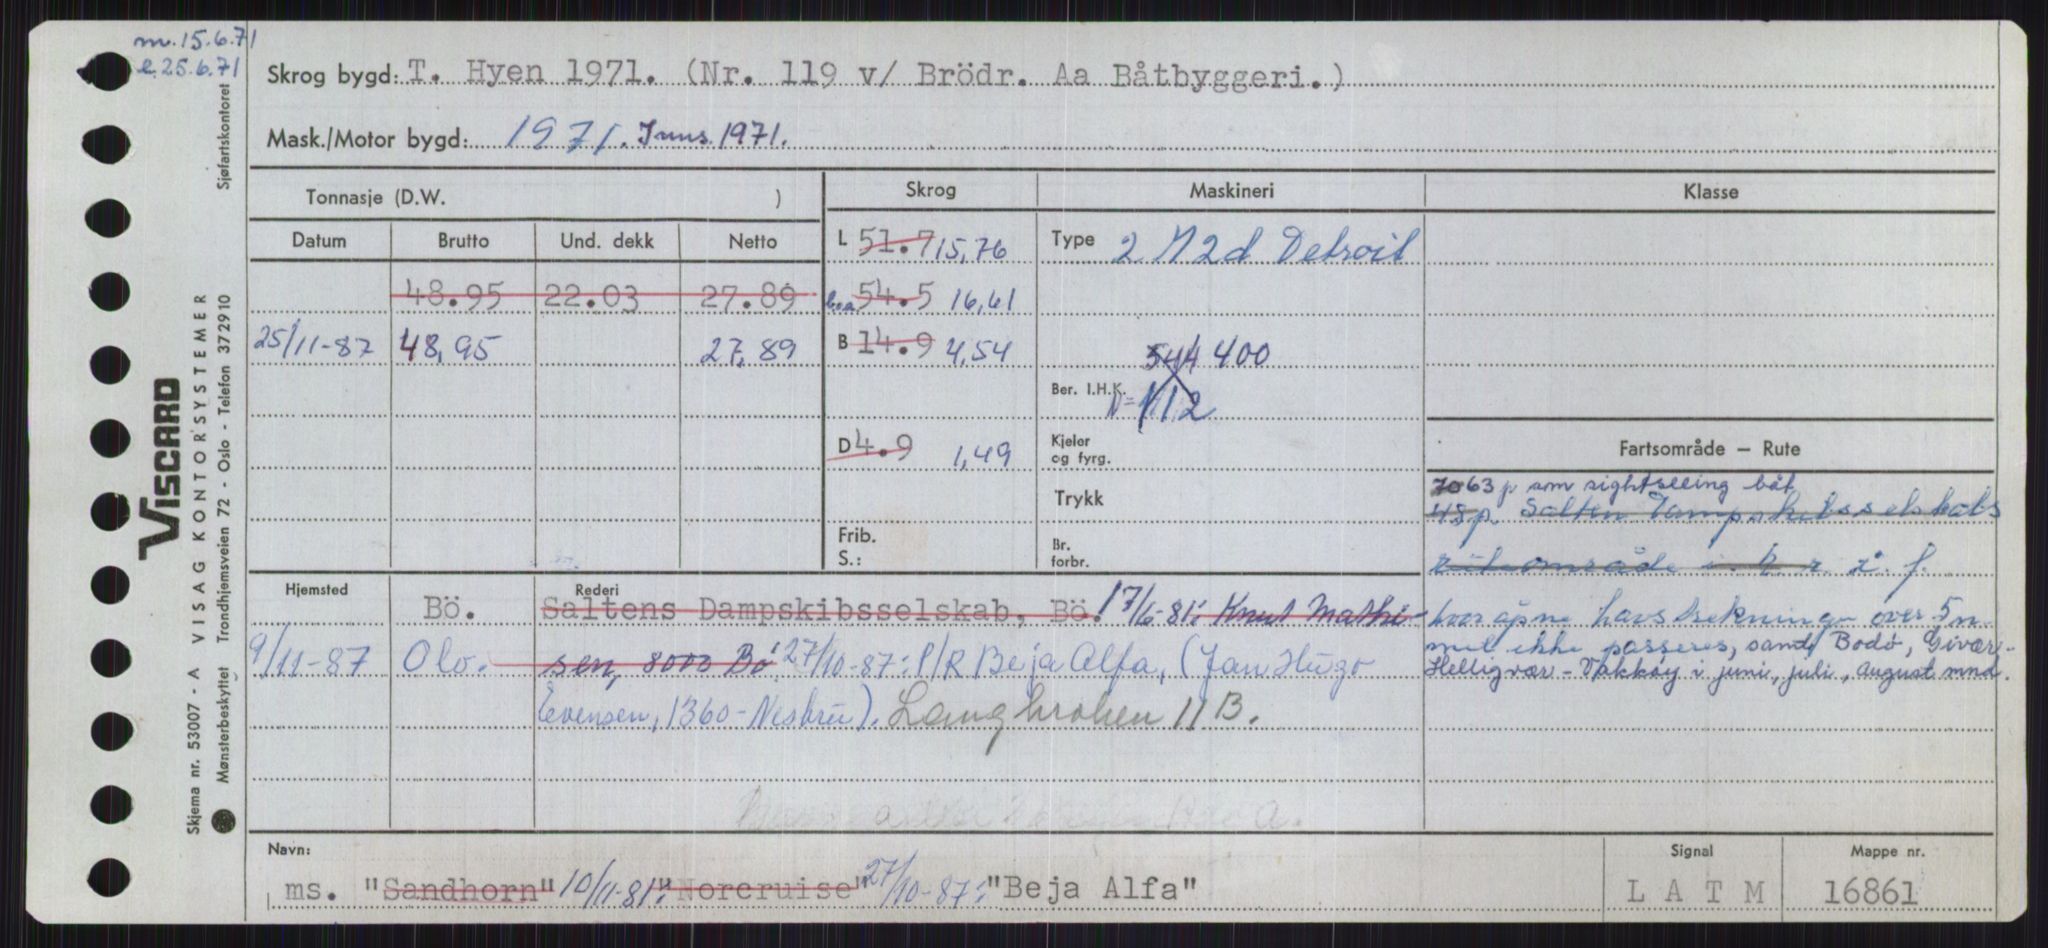 m. 15.6.71
e. 25.6.71
Skrog bygd: T. Hyen 1971. (Nr. 119 v/ Brödr. Aa Båtbyggeri.)
Mask./Motor bygd: 1971. Juns. 1971.
Tonnasje (D.W. )
Skrog Maskineri Klasse
Datum Brutto Und. dekk Netto
L 51.7 15,76 Type 2 12d Detroit
48.95 22.03 27.89 boa 54.5 16,61
25/11-87 48,95 27,89 B 14.9 4,54
544 400
Ber. I.H.K. N= 112
D 4.9 1,49 Kjeler og fyrg.
Trykk
Frib. S.: Br. forbr.
Fartsområde – Rute
70 63 p som sightseeing båt
48 p. Salten Dampskibsselskabs
ruteområde i h. r. z. f.
hvor åpne havstrekninger over 5 n-
mil ikke passeres, samt Bodø, Givær-
Helligvær - Vakkøy i juni, juli, august mnd.
Hjemsted Rederi
Bö. Saltens Dampskibsselskab, Bö. 17/6-81: Knut Mathi-
9/11-87 Olo. sen, 8000 Bö. 27/10-87: P/R Beja Alfa, (Jan Hugo
Evensen, 1360-Nesbru). Langbroken 11 B.
Navn: Signal Mappe nr.
ms. "Sandhorn" 10/11-81: "Norcruise" 27/10-87: "Beja Alfa" LATM 16861
Sjøfartskontoret
VISCARD
Skjema nr. 53007 - A VISAG KONTORSYSTEMER
Mønsterbeskyttet Trondhjemsveien 72 - Oslo - Telefon 372910